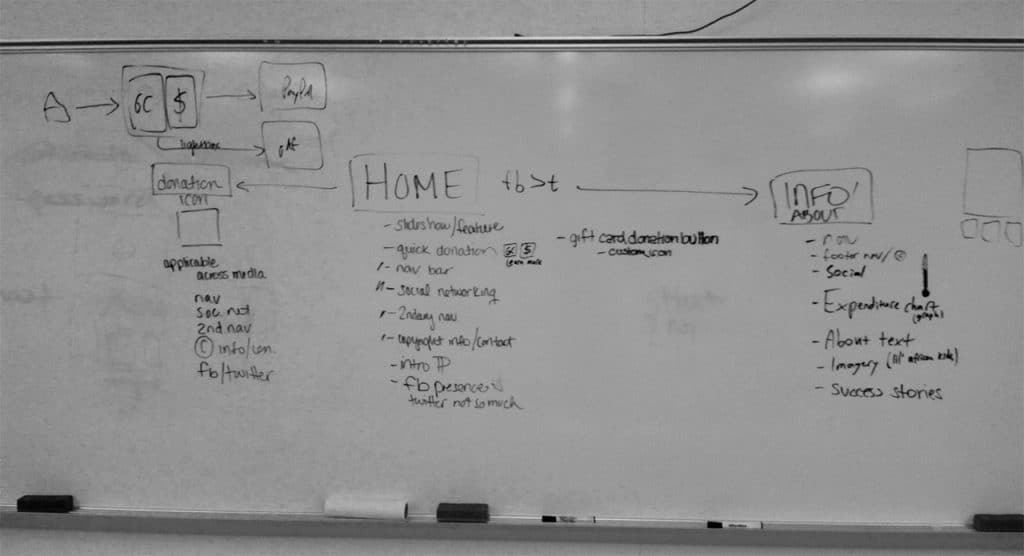 GC $
PayPal
lightbox
donation
icon
applicable
across media
nav
soc. net.
2nd nav
© info/con.
fb/twitter
HOME fb>t
- slideshow/feature
- quick donation GC $
learn more
- nav bar
- social networking
- 2ndary nav
- copyright info/contact
- intro TP
- fb presence is
twitter not so much
- gift card, donation button
- custom icon
INFO/
ABOUT
- nav
- footer nav/©
- Social
- Expenditure chart
(graph)
- About text
- Imagery (lil' african kids)
- Success stories